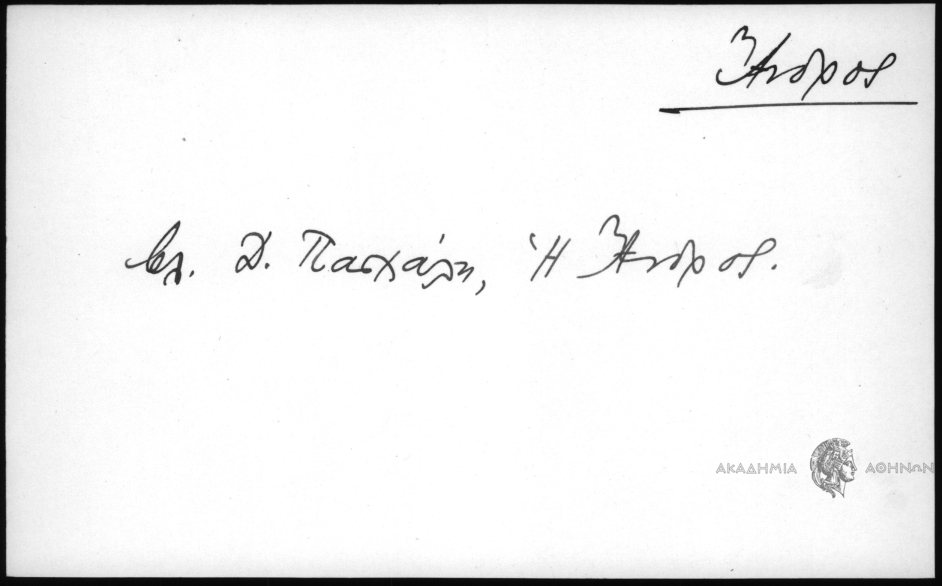 Ἄνδρος
βλ. Δ. Πασχάλη, Ἡ Ἄνδρος.
ΑΚΑΔΗΜΙΑ ΑΘΗΝΩΝ